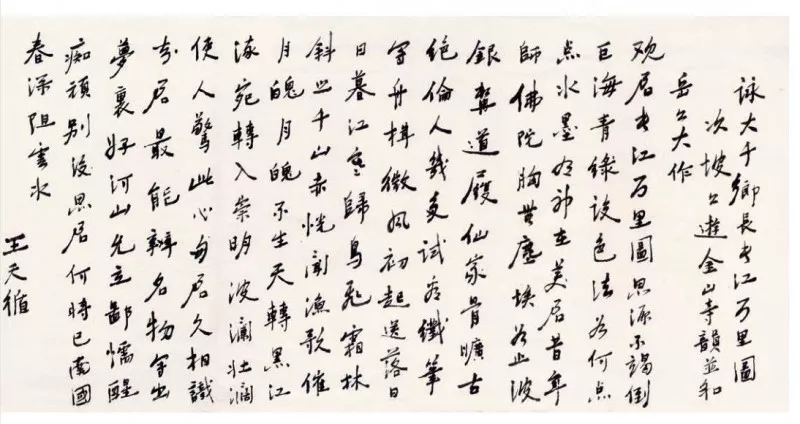 詠大千鄉長长江万里圖
次坡公遊金山寺韻並和
岳公大作
观君长江万里圖思源不竭倒
巨海青绿设色法为何点
点水墨为神在美君昔年
師佛院胸無塵埃为止波
銀髯道履仙家骨曠古
絕倫人幾多试为纖筆
写舟楫微风初起送落日
日暮江寒歸鳥飞霜林
斜照千山赤恍闻漁歌催
月魄月魄不生天轉黑江
流宛轉入崇明波瀾壯阔
使人驚此心与君久相識
知君最能辨名物写出
夢裏好河山允立鄙懦醒
痴頑别後思君何時已南國
春深阻雲水
王天循